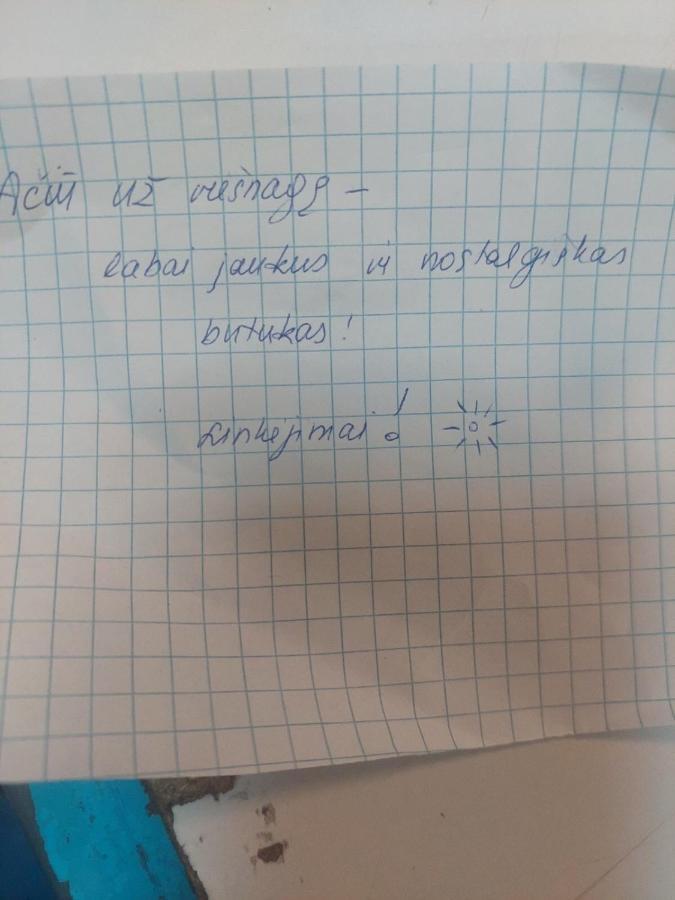 Ačiū už viešnagę –
labai jaukus ir nostalgiškas
butukas!
Linkėjimai!